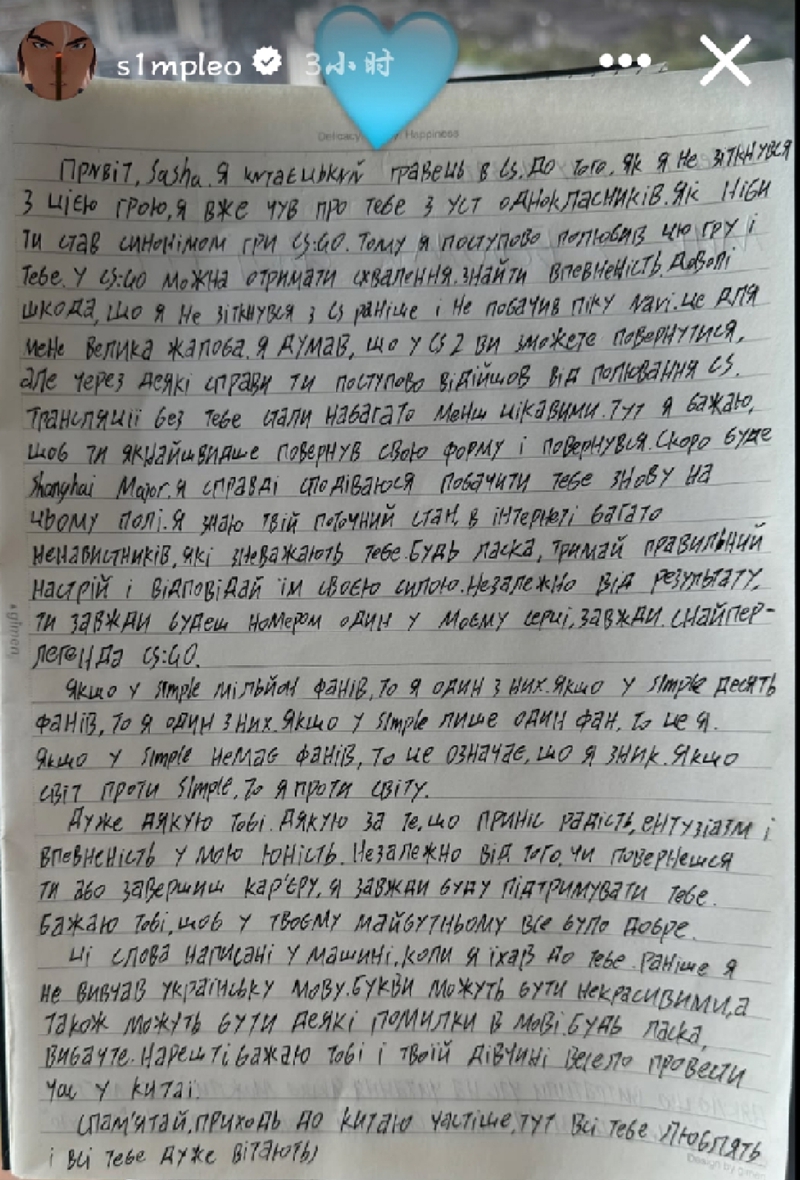 s1mpleo 3小时
Happiness
Привіт, Sasha. Я китаєцький гравець в CS. До того, як я не зіткнувся
з цією грою, я вже чув про тебе з уст однокласників. Як ніби
ти став синонімом гри CS:GO. Тому я поступово полюбив цю гру і
тебе. У CS:GO можна отримати схвалення. знайти впевненість. Доволі
шкода, що я не зіткнувся з CS раніше і не побачив піку Navi. це для
мене велика жалоба. Я думав, що у CS 2 ви зможете повернутися,
але через деякі справи ти поступово відійшов від полювання CS.
Трансляції без тебе стали набагато менш цікавими. Тут я бажаю,
щоб ти якнайшвидше повернув свою форму і повернувся. Скоро буде
Shanghai Major. Я справді сподіваюся побачити тебе знову на
цьому полі. Я знаю твій поточний стан, в інтернеті багато
ненависників, які зневажають тебе. Будь ласка, тримай правильний
настрій і відповідай їм своєю силою. Незалежно від результату,
ти завжди будеш номером один у моєму серці, завжди. Снайпер-
легенда CS:GO.
Якщо у simple мільйон фанів, то я один з них. Якщо у simple десять
фанів, то я один з них. Якщо у simple лише один фан, то це я.
Якщо у simple немає фанів, то це означає, що я зник. Якщо
світ проти simple, то я проти світу.
Дуже дякую тобі. Дякую за те, що приніс радість, ентузіазм і
впевненість у мою юність. Незалежно від того, чи повернешся
ти або завершиш кар'єру, я завжди буду підтримувати тебе.
Бажаю тобі, щоб у твоєму майбутньому все було добре.
Ці слова написані у машині, коли я їхав до тебе. Раніше я
не вивчав українську мову. Букви можуть бути некрасивими, а
також можуть бути деякі помилки в мові. Будь ласка,
вибачте. Нарешті бажаю тобі і твоїй дівчині весело провести
час у Китаї.
Спам'ятай, приходь до Китаю частіше, тут всі тебе люблять
і всі тебе дуже вітають)